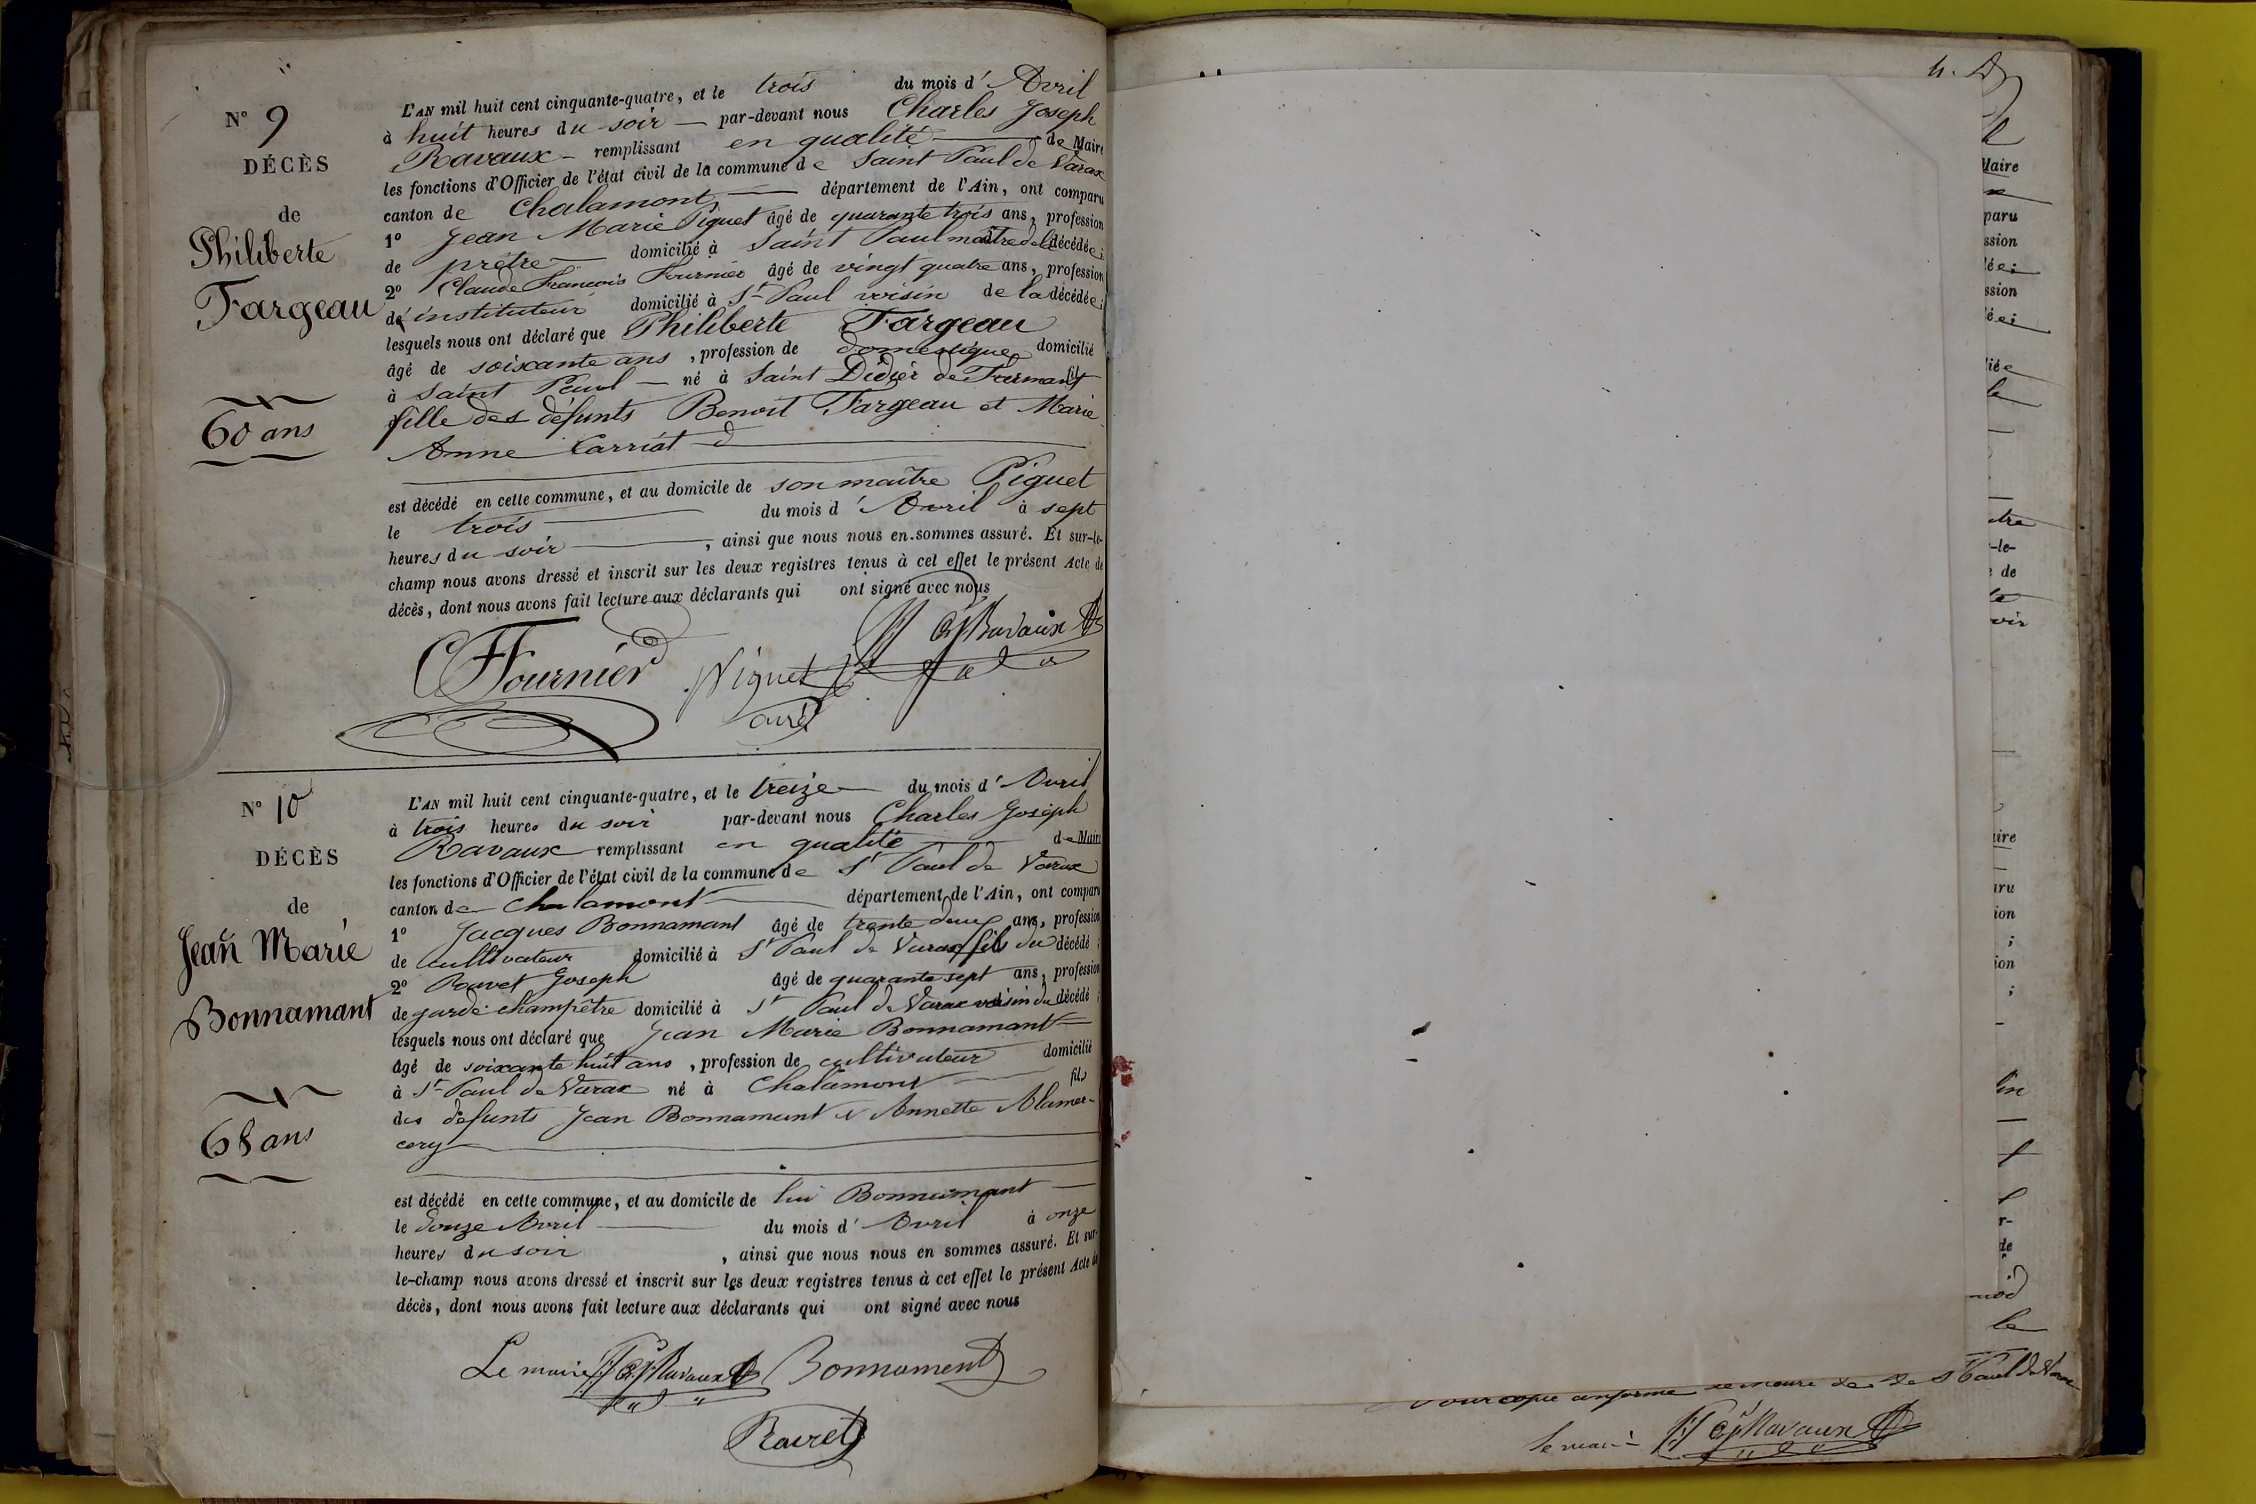 N° 9
DÉCÈS
de
Philiberte
Fargeau
60 ans
L'AN mil huit cent cinquante-quatre, et le trois du mois d' Avril
à huit heures du soir par-devant nous Charles Joseph
Ravaux remplissant en qualité de Maire
les fonctions d'Officier de l'état civil de la commune de Saint Paul de Varax
canton de Chalamont département de l'Ain, ont comparu
1° Jean Marie Piguet âgé de quarante trois ans, profession
de prêtre domicilié à Saint Paul maitre de la décédée;
2° Claude François Fournier âgé de vingt quatre ans, profession
d'instituteur domicilié à St Paul voisin de la décédée;
lesquels nous ont déclaré que Philiberte Fargeau
âgé de soixante ans, profession de domestique domicilié
à Saint Paul né à Saint Didier de Formant fil
fille des défunts Benoit Fargeau et Marie
Anne Carriat
est décédé en cette commune, et au domicile de son maître Piguet
le trois du mois d' Avril à sept
heures du soir, ainsi que nous nous en sommes assuré. Et sur-le-
champ nous avons dressé et inscrit sur les deux registres tenus à cet effet le présent Acte de
décès, dont nous avons fait lecture aux déclarants qui ont signé avec nous
CFournier Piguet CJRavaux
curé
N° 10
DÉCÈS
de
Jean Marie
Bonnamant
68 ans
L'AN mil huit cent cinquante-quatre, et le treize du mois d' Avril
à trois heures du soir par-devant nous Charles Joseph
Ravaux remplissant en qualité de Maire
les fonctions d'Officier de l'état civil de la commune de St Paul de Varax
canton de Chalamont département de l'Ain, ont comparu
1° Jacques Bonnamant âgé de trente deux ans, profession
de cultivateur domicilié à St Paul de Varax fils du décédé;
2° Ravet Joseph âgé de quarante sept ans, profession
de garde champêtre domicilié à St Paul de Varax voisin du décédé;
lesquels nous ont déclaré que Jean Marie Bonnamant
âgé de soixante huit ans, profession de cultivateur domicilié
à St Paul de Varax né à Chalamont fils
des défunts Jean Bonnamant & Annette Alamer-
cery
est décédé en cette commune, et au domicile de lui Bonnamant
le douze Avril du mois d' Avril à onze
heures du soir, ainsi que nous nous en sommes assuré. Et sur-
le-champ nous avons dressé et inscrit sur les deux registres tenus à cet effet le présent Acte de
décès, dont nous avons fait lecture aux déclarants qui ont signé avec nous
Le maire CJRavaux Bonnament
Ravet
Maire
paru
ssion
ssion
-le-
de
aire
aru
ion
;
ion
;
Pour copie conforme de St Paul de Varax
Le maire CJRavaux